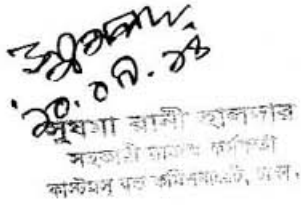 ২০.০৭.১৪
সুষমা রানী হালদার
সহকারী রাজস্ব কর্মকর্তা
কাস্টমস্ বন্ড কমিশনারেট, ঢাকা।